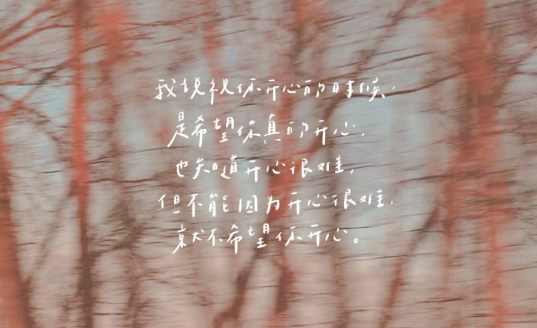 我说祝你开心的时候，
是希望你真的开心，
也知道开心很难，
但不能因为开心很难，
就不希望你开心。